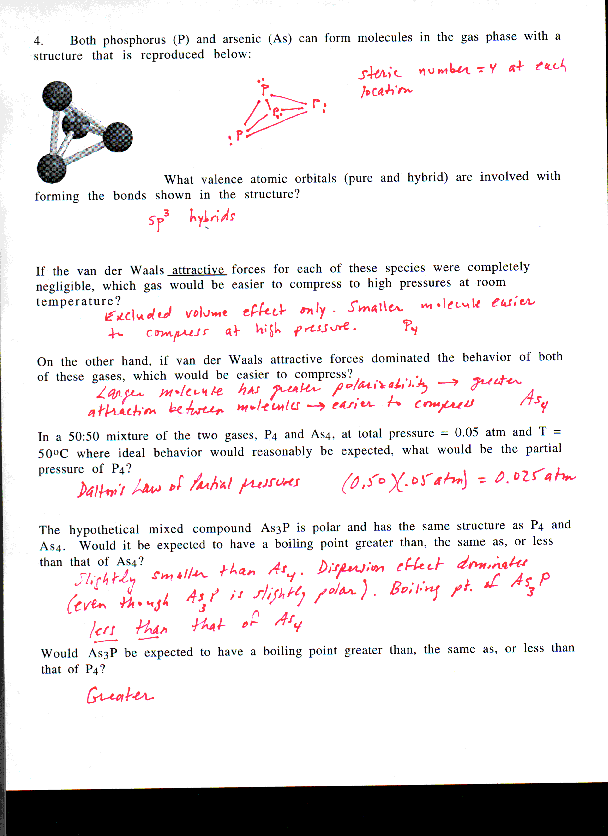 4. Both phosphorus (P) and arsenic (As) can form molecules in the gas phase with a
structure that is reproduced below:
steric number = 4 at each
location
P
P:
P
:P
What valence atomic orbitals (pure and hybrid) are involved with
forming the bonds shown in the structure?
sp³ hybrids
If the van der Waals attractive forces for each of these species were completely
negligible, which gas would be easier to compress to high pressures at room
temperature?
Excluded volume effect only. Smaller molecule easier
to compress at high pressure. P₄
On the other hand, if van der Waals attractive forces dominated the behavior of both
of these gases, which would be easier to compress?
Larger molecule has greater polarizability → greater
attraction between molecules → easier to compress As₄
In a 50:50 mixture of the two gases, P₄ and As₄, at total pressure = 0.05 atm and T =
50°C where ideal behavior would reasonably be expected, what would be the partial
pressure of P₄?
Dalton's Law of Partial pressures (0.50)(.05 atm) = 0.025 atm
The hypothetical mixed compound As₃P is polar and has the same structure as P₄ and
As₄. Would it be expected to have a boiling point greater than, the same as, or less
than that of As₄?
Slightly smaller than As₄. Dispersion effect dominates
(even though As₃P is slightly polar). Boiling pt. of As₃P
less than that of As₄
Would As₃P be expected to have a boiling point greater than, the same as, or less than
that of P₄?
Greater